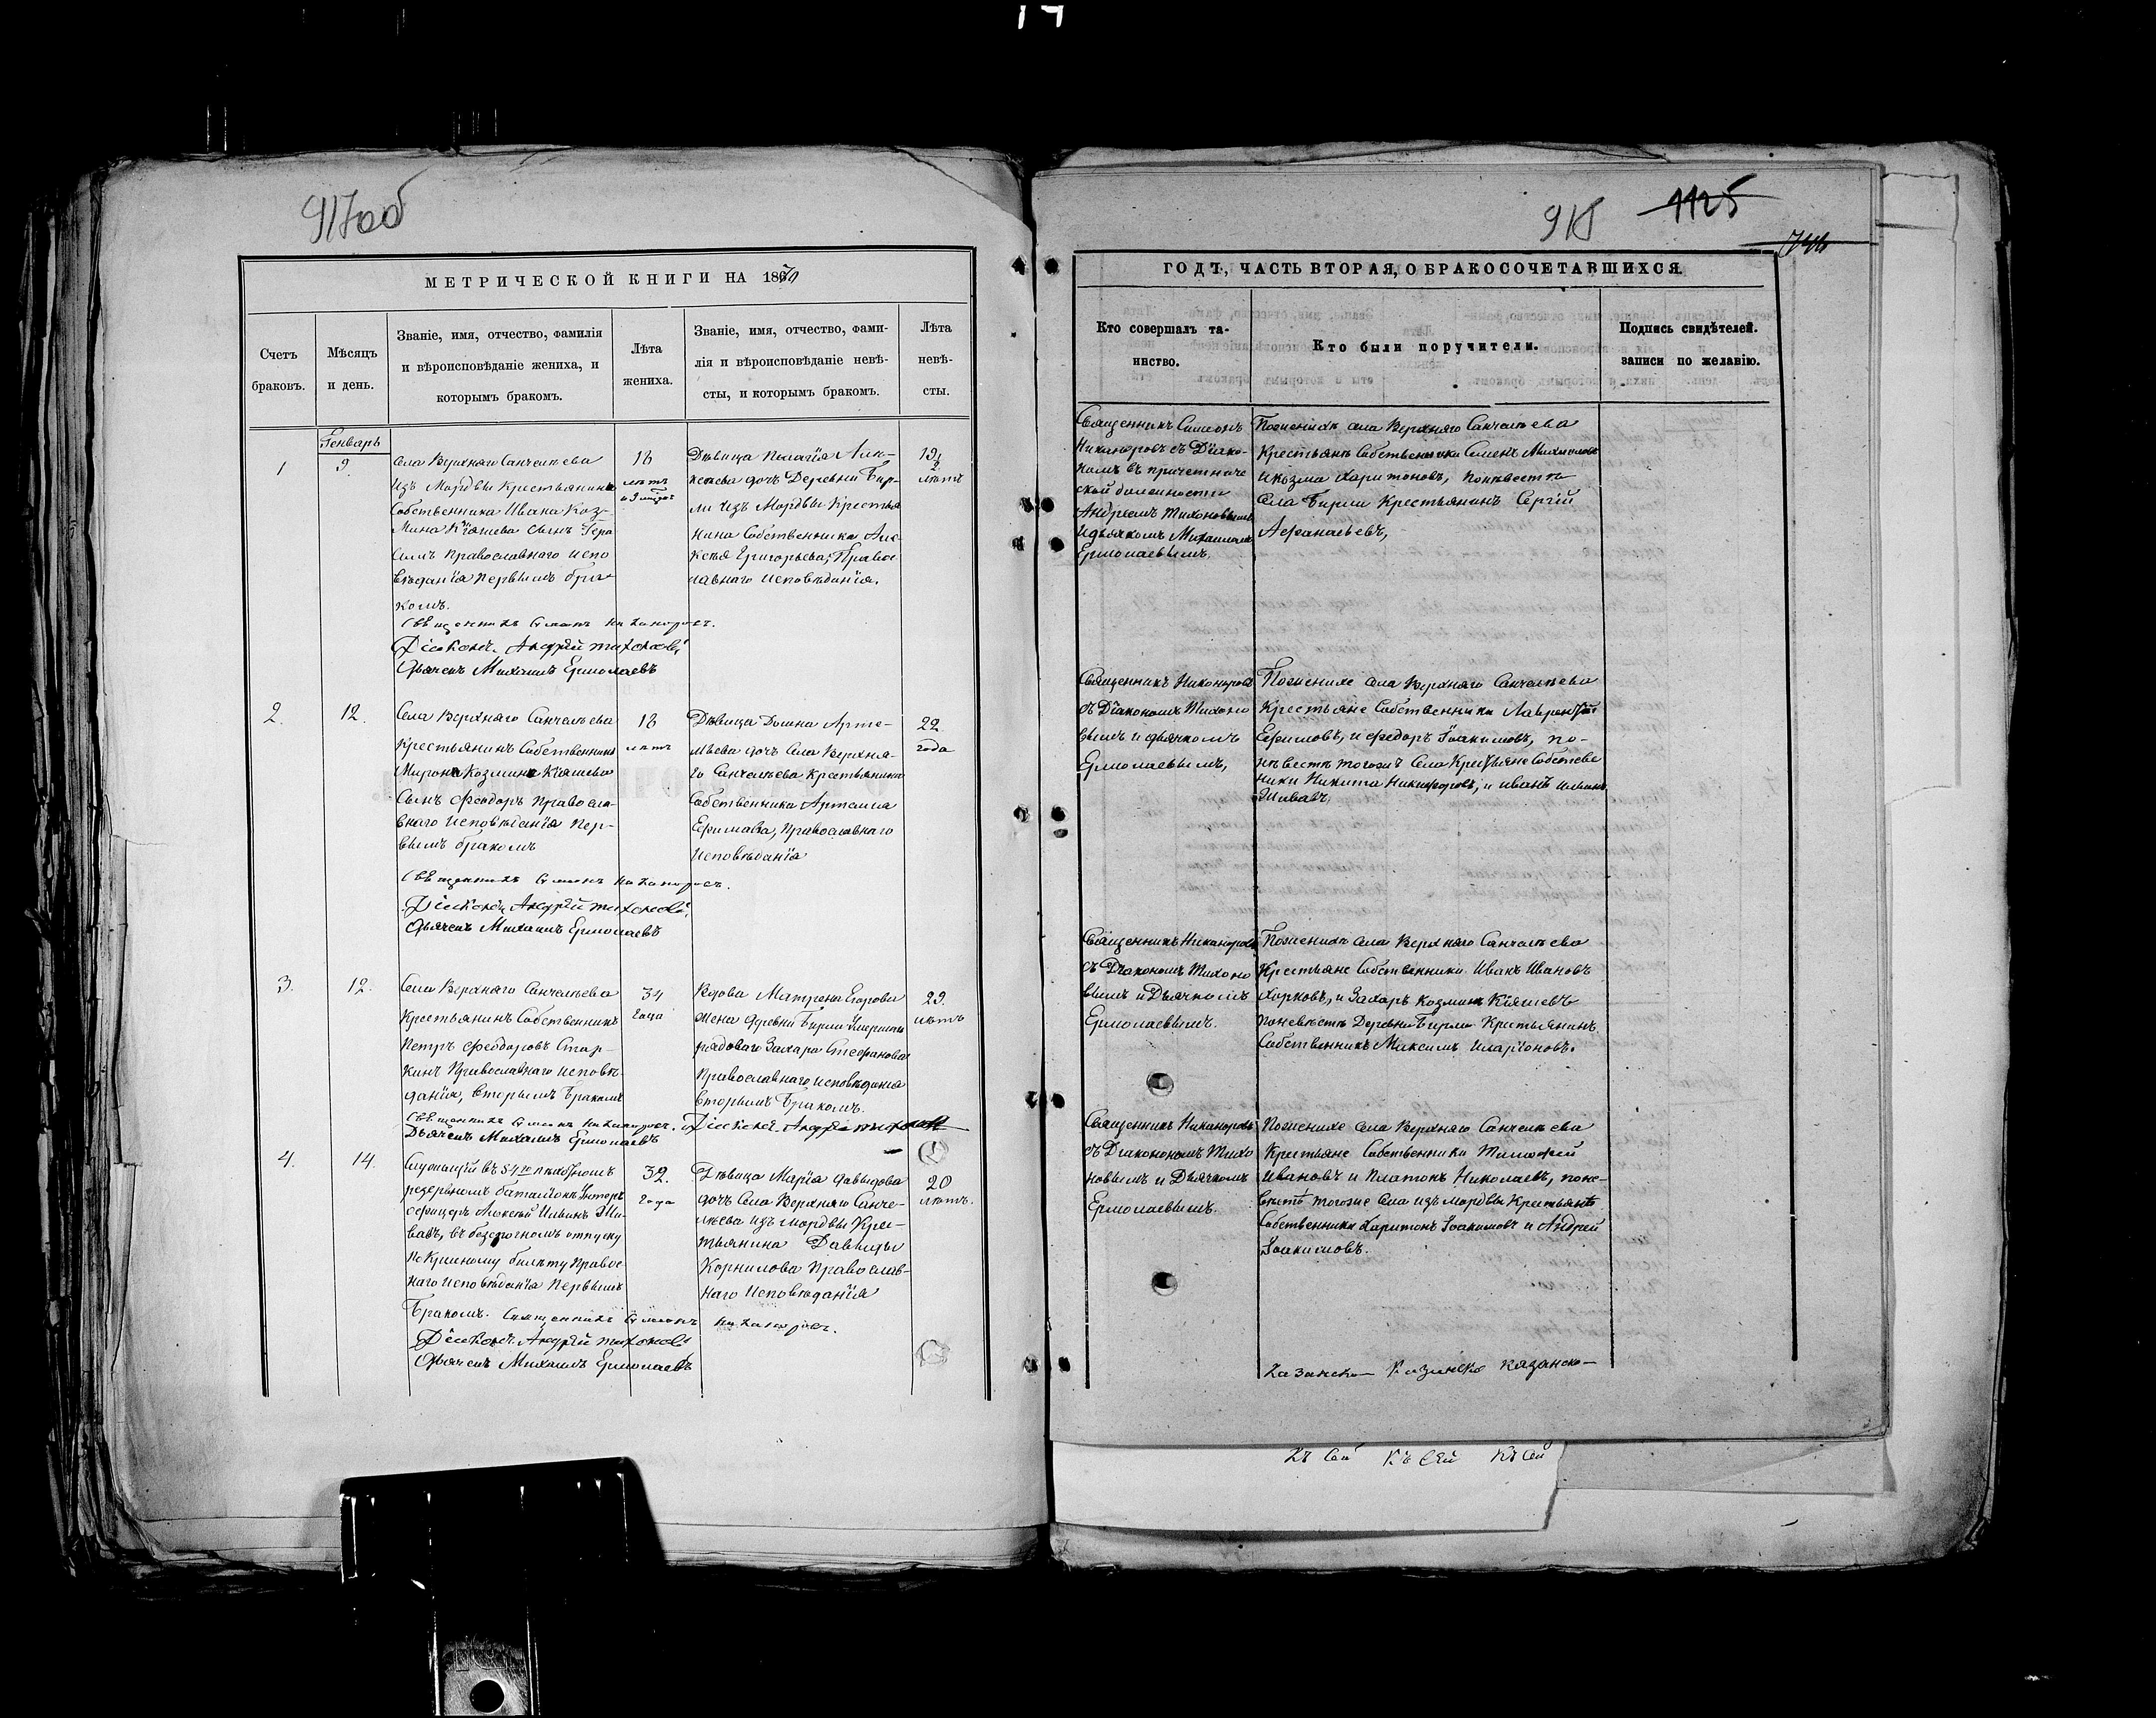 917об
МЕТРИЧЕСКОЙ КНИГИ НА 1870
Счетъ
браковъ.
Мѣсяцъ
и день.
Званіе, имя, отчество, фамилія
и вѣроисповѣданіе жениха, и
которымъ бракомъ.
Лѣта
жениха.
Званіе, имя, отчество, фами-
лія и вѣроисповѣданіе невѣ-
сты, и которымъ бракомъ.
Лѣта
невѣ-
сты.
Генварь
1
9.
Села Верхняго Санчелѣева
Изъ Мордвы Крестьянина
Собственника Ивана Коз-
мина Кіяшева сынъ Гера
симъ православнаго испо
вѣданія первымъ бра-
комъ.
Священникъ Симеонъ Никаноровъ.
Діаконъ Андрей Тихоновъ
Дьячекъ Михаилъ Ермолаевъ
18
лѣтъ
Дѣвица Пелагія Алек-
сѣева дочь Деревни Бир-
ли Изъ Мордвы Крестья
нина Собственника Але
ксѣя Григорьева, Правос
лавнаго исповѣданія.
19½
лѣтъ
2.
12.
Села Верхняго Санчелѣева
Крестьянинъ Собственникъ
Мирона Козмина Кіяшева
Сынъ Феодоръ Правосла-
внаго исповѣданія пер-
вымъ бракомъ
Священникъ Симеонъ Никаноровъ.
Діаконъ Андрей Тихоновъ
Дьячекъ Михаилъ Ермолаевъ
18
лѣтъ
Дѣвица Домна Арте-
мьева дочь Села Верхня-
го Санчелѣева Крестьянина
Собственника Артемия
Ефимова, Православнаго
исповѣданія
22
года
3.
12.
Села Верхняго Санчелѣева
Крестьянинъ Собственникъ
Петръ Феодоровъ Стар-
кинъ Православнаго исповѣ-
данія, вторымъ Бракомъ
Священникъ Симеонъ Никаноровъ. Діаконъ Андрей Тихонов
Дьячекъ Михаилъ Ермолаевъ
34
Года
Вдова Матрена Егорова
жена Деревни Бирли Умершаго
рядоваго Захара Стефанова
Православнаго исповѣданія
вторымъ Бракомъ.
29.
лѣтъ
4.
14.
Служащій въ 54го пѣхотномъ
резервномъ баталіонѣ Унтеръ
офицеръ Алексѣй Ильинъ Ши-
вавъ, въ безсрочномъ отпуску
наго исповѣданія первымъ
Бракомъ. Священникъ Симеонъ Никаноровъ.
Діаконъ Андрей Тихоновъ
Дьячекъ Михаилъ Ермолаевъ
32.
года
Дѣвица Марія Давыдова
дочь Села Верхняго Санче-
лѣева изъ мордвы Кре-
стьянина Давыда
Корнилова Православ-
наго исповѣданія
20
лѣтъ.
918
1125
ГОДЪ, ЧАСТЬ ВТОРАЯ, О БРАКОСОЧЕТАВШИХСЯ
Кто совершалъ та-
инство.
Кто были поручители.
Подпись свидѣтелей.
записи по желанію.
Священникъ Симеонъ
Никаноровъ съ Діако-
номъ въ причетниче
ской должности
Андреемъ Тихоновымъ
И дьячкомъ Михаиломъ
Ермолаевымъ.
По женихѣ села Верхняго Санчелѣева
Крестьяне Собственники Семенъ Михайловъ
и Козма Харитоновъ, по невѣстѣ
Села Бирли Крестьянинъ Сергій
Афанасьевъ,
Священникъ Никаноровъ
съ Діакономъ Тихоно
вымъ и дьячкомъ
Ермолаевымъ,
По женихе села Верхняго Санчелѣева
Крестьяне Собственники Лаврентій
Ефимовъ, и Федоръ Іоакимовъ, по-
невѣстѣ тогожъ Села Крестьяне Собстве
ники Никита Никифоровъ, и иванъ ильинъ
Шивавъ.
Священникъ Никаноровъ
съ Діакономъ Тихоно
вымъ и Дьячкомъ
Ермолаевымъ.
По женихѣ села Верхняго Санчелѣева
Крестьяне Собственники Иванъ Ивановъ
Хорковъ, и Захаръ Козминъ Кіяшевъ
по невѣстѣ Деревни Бирли Крестьянинъ
Собственникъ Максимъ Иларіоновъ.
Священникъ Никаноровъ
съ Діакономъ Тихо
новымъ и Дьячкомъ
Ермолаевымъ.
По женихе села Верхняго Санчелѣева
Крестьяне Собственники Тимофей
Ивановъ и Платонъ Николаевъ, поне-
вѣстѣ тогоже Села изъ мордвы Крестьяне
Собственники Харитонъ Іоакимовъ и Андрей
Іоакимовъ.
Казанско- Казанско Казанско-
Къ Сей Къ Сей Къ Сей